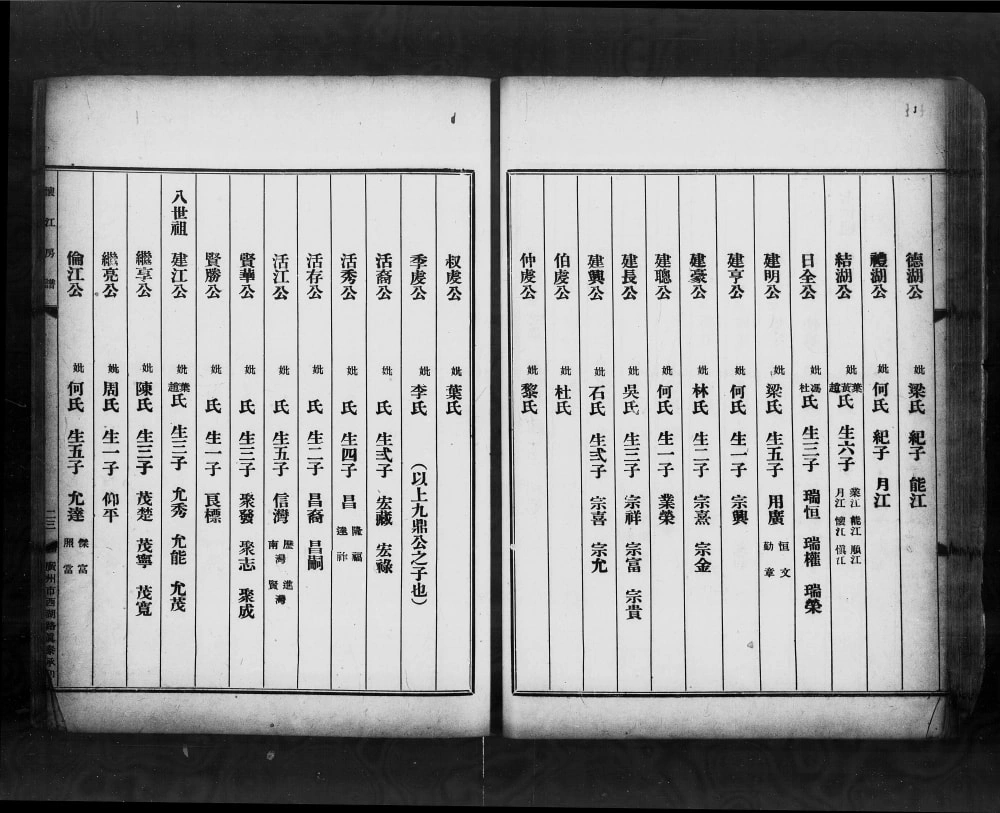 德湖公 妣梁氏 紀子 能江
禮湖公 妣何氏 紀子 月江
結湖公 妣葉黃趙氏 生六子 業江 能江 順江 月江 懷江 慎江
日全公 妣馮杜氏 生三子 瑞恒 瑞權 瑞榮
建明公 妣梁氏 生五子 用廣 恒 文 勤 章
建亨公 妣何氏 生一子 宗興
建豪公 妣林氏 生二子 宗熹 宗金
建聰公 妣何氏 生一子 業榮
建長公 妣吳氏 生三子 宗祥 宗富 宗貴
建興公 妣石氏 生弍子 宗喜 宗允
伯虔公 妣杜氏
仲虔公 妣黎氏
叔虔公 妣葉氏
季虔公 妣李氏 （以上九鼎公之子也）
活裔公 妣 氏 生弍子 宏藏 宏祿
活秀公 妣 氏 生四子 昌 隆 福 達 祚
活存公 妣 氏 生二子 昌裔 昌嗣
活江公 妣 氏 生五子 信灣 歷灣 進灣 南 賢
賢華公 妣 氏 生三子 聚發 聚志 聚成
賢勝公 妣 氏 生一子 良標
八世祖 建江公 妣葉趙氏 生三子 允秀 允能 允茂
繼亨公 妣陳氏 生三子 茂楚 茂寧 茂寬
繼亮公 妣周氏 生一子 仰平
倫江公 妣何氏 生五子 允達 傑 富 熙 當
懷江房譜
二三
廣州市西湖路